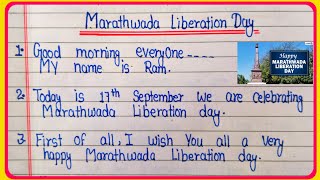 Marathwada Liberation Day
1. Good morning everyone----
MY name is Ram.
Happy
MARATHWADA
LIBERATION
DAY
2. Today is 17th September we are celebrating
Marathwada Liberation day.
3. First of all, I wish You all a very
happy Marathwada Liberation day.